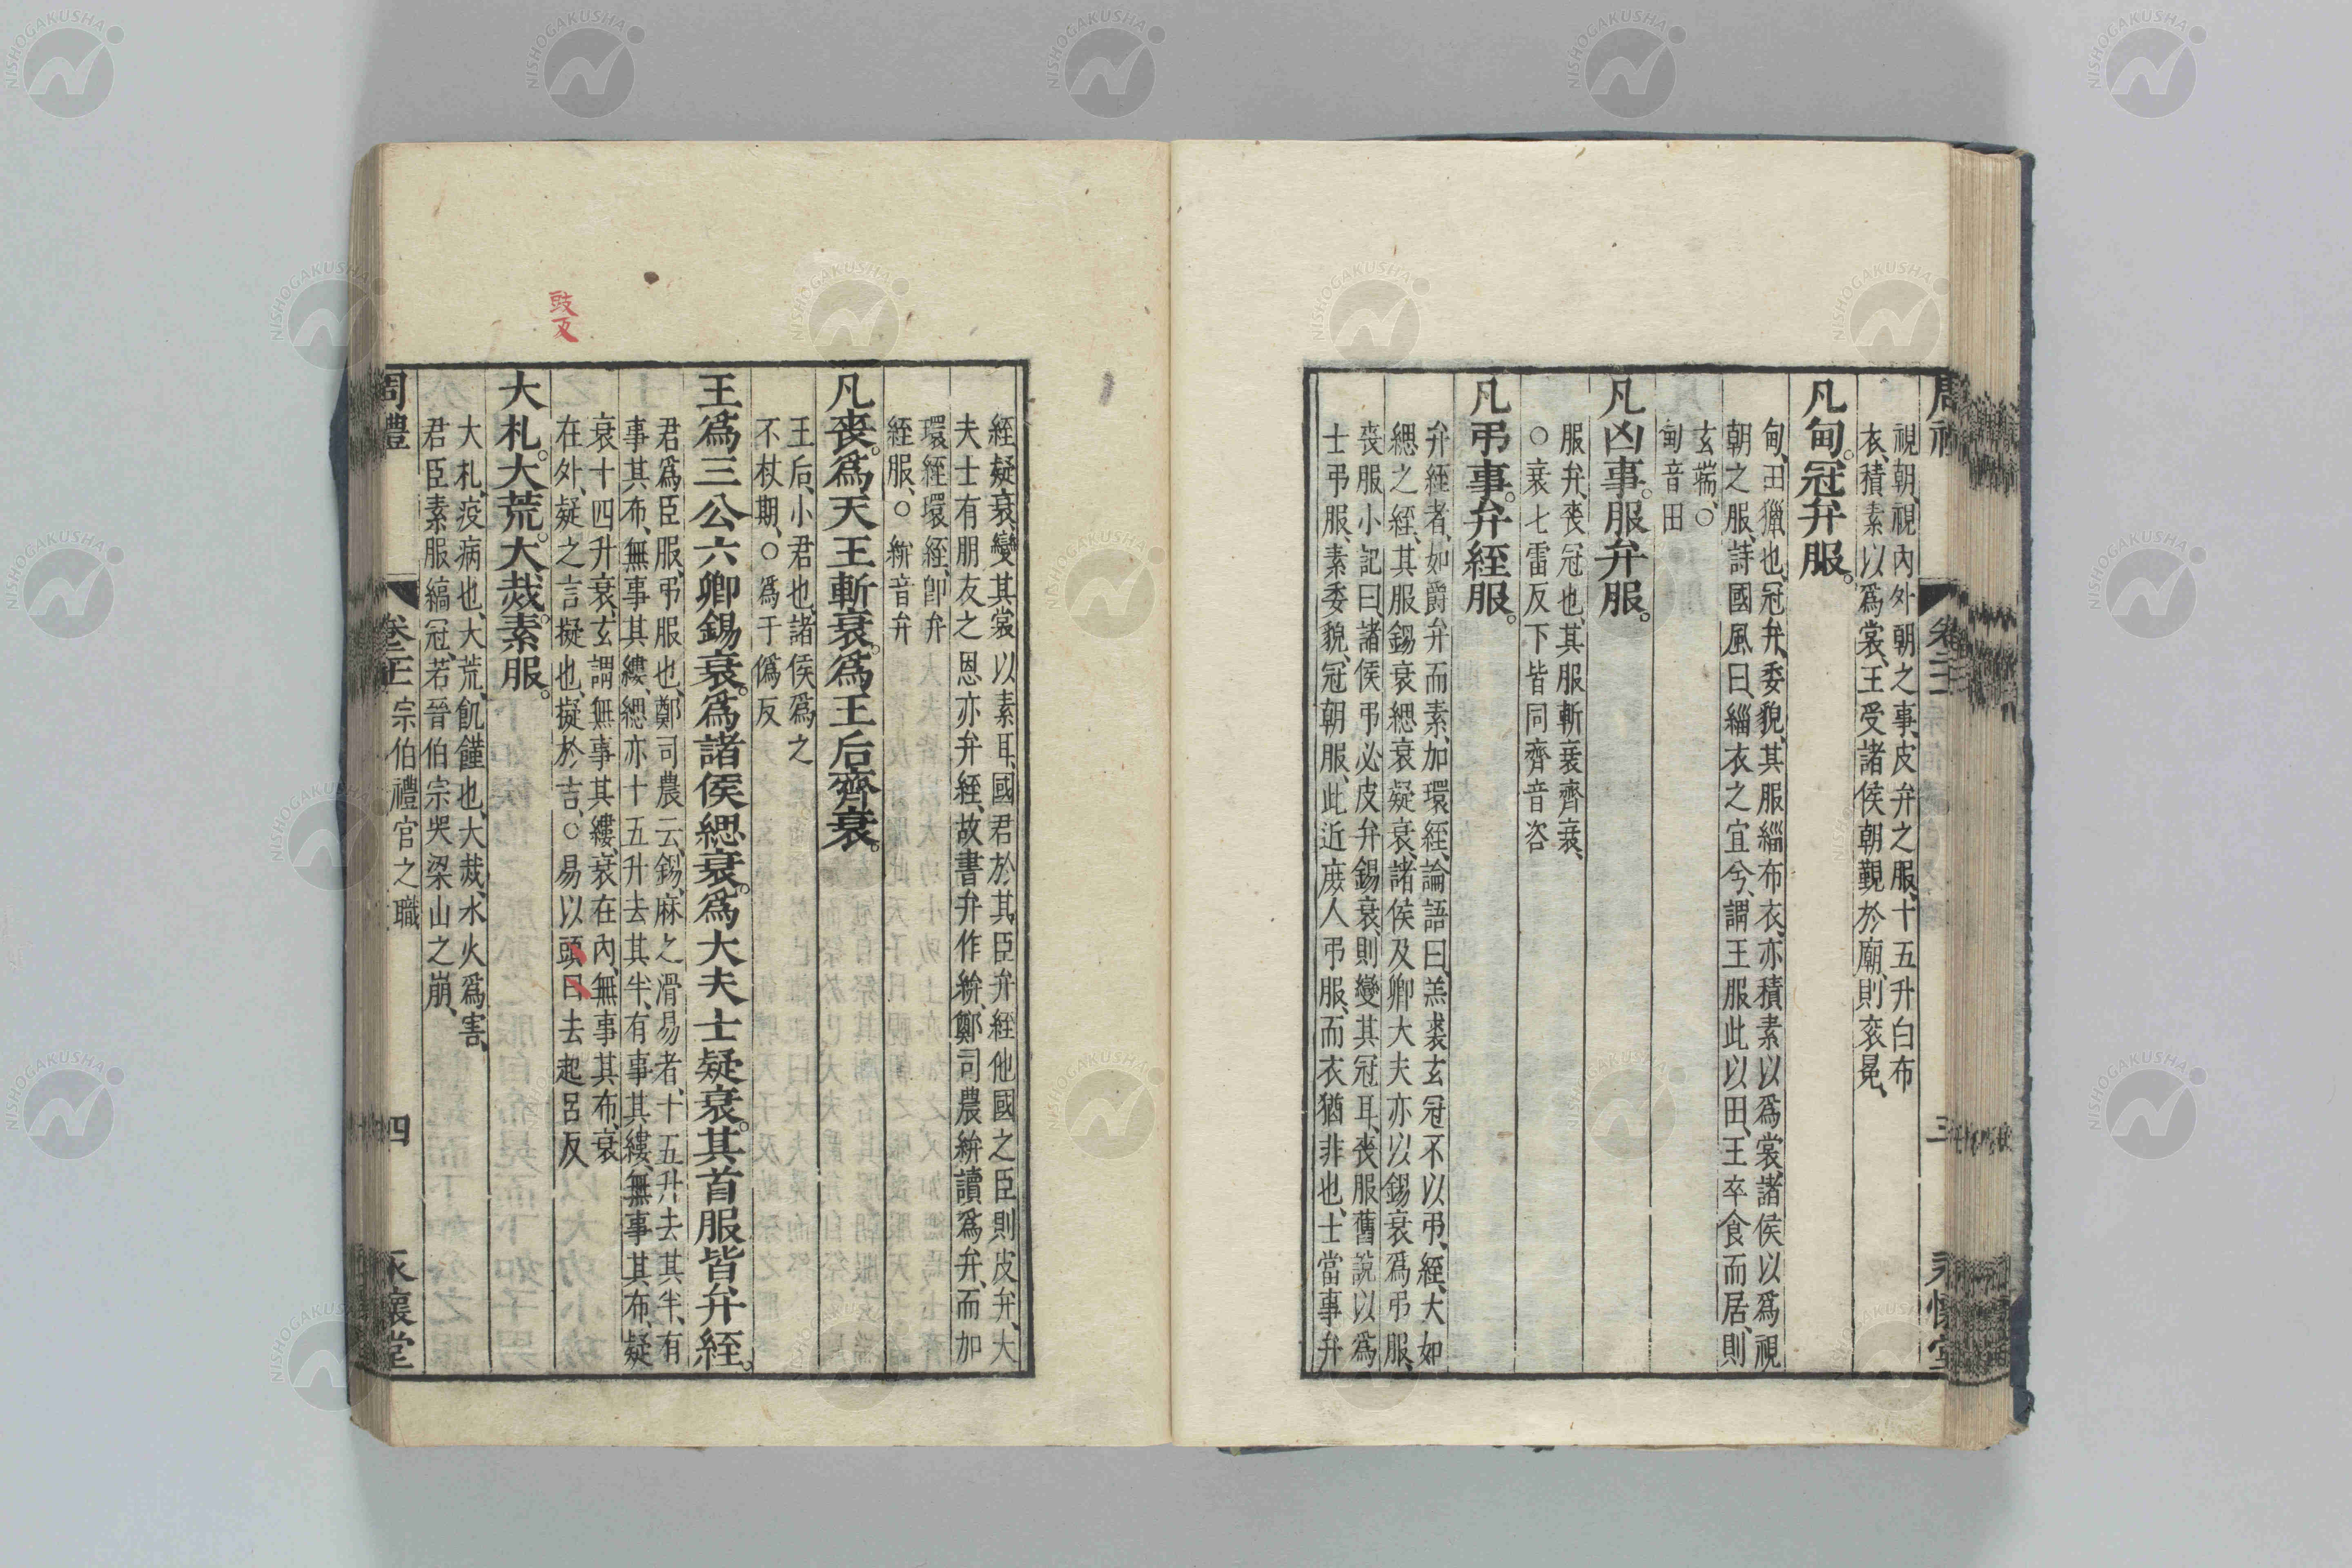 視朝、視內外朝之事、皮弁之服、十五升白布
衣、積素以爲裳、王受諸侯朝覲於廟、則衮冕、
凡甸。冠弁服。
甸、田獵也、冠弁、委貌、其服緇布衣、亦積素以爲裳、諸侯以爲視
朝之服、詩國風曰、緇衣之宜兮、謂王服此以田、王卒食而居、則
玄端、○
甸音田
凡凶事。服弁服。
服弁、喪冠也、其服斬衰齊衰、
○衰七雷反下皆同齊音咨
凡弔事。弁絰服。
弁絰者、如爵弁而素、加環絰、論語曰、羔裘玄冠不以弔、絰、大如
緦之絰、其服錫衰緦衰疑衰、諸侯及卿大夫亦以錫衰爲弔服、
喪服小記曰、諸侯弔必皮弁錫衰、則變其冠耳、喪服舊說以爲
士弔服、素委貌、冠朝服、此近庶人弔服、而衣猶非也、士當事弁
絰疑衰、變其裳以素耳、國君於其臣弁絰他國之臣則皮弁、大
夫士有朋友之恩亦弁絰、故書弁作絣、鄭司農絣讀爲弁、而加
環絰環絰、卽弁
絰服、○絣音弁
凡喪。爲天王斬衰。爲王后齊衰。
王后、小君也、諸侯爲之
不杖期、○爲于僞反
王爲三公六卿錫衰。爲諸侯緦衰。爲大夫士疑衰。其首服皆弁絰。
君爲臣服、弔服也、鄭司農云、錫、麻之滑易者、十五升去其半、有
事其布、無事其縷、緦亦十五升去其半、有事其縷、無事其布、疑
衰十四升衰、玄謂無事其縷、衰在內、無事其布、衰
在外、疑之言擬也、擬於吉、○易以頭曰去起呂反
豉反
大札。大荒。大烖。素服。
大札、疫病也、大荒、飢饉也、大烖、水火爲害、
君臣素服縞冠、若晉伯宗哭梁山之崩、
周禮 卷二十一 宗伯禮官之職 四 永懷堂